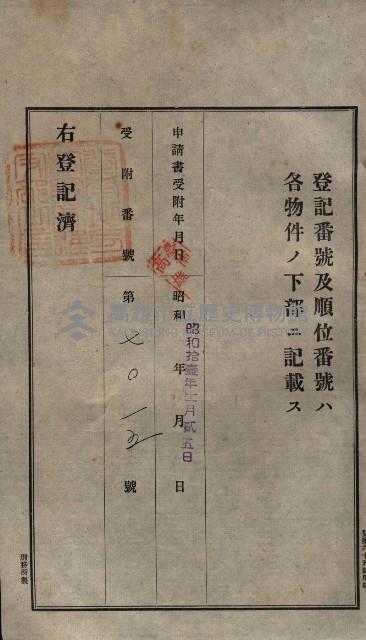 登記番號及順位番號ハ
各物件ノ下部ニ記載ス
申請書受附年月日
昭和 年 月 日
昭和拾壹年 月貳五日
受附番號 第七〇一五號
右登記濟
高雄市立歷史博物館
KAOHSIUNG MUSEUM OF HISTORY
刑務所製